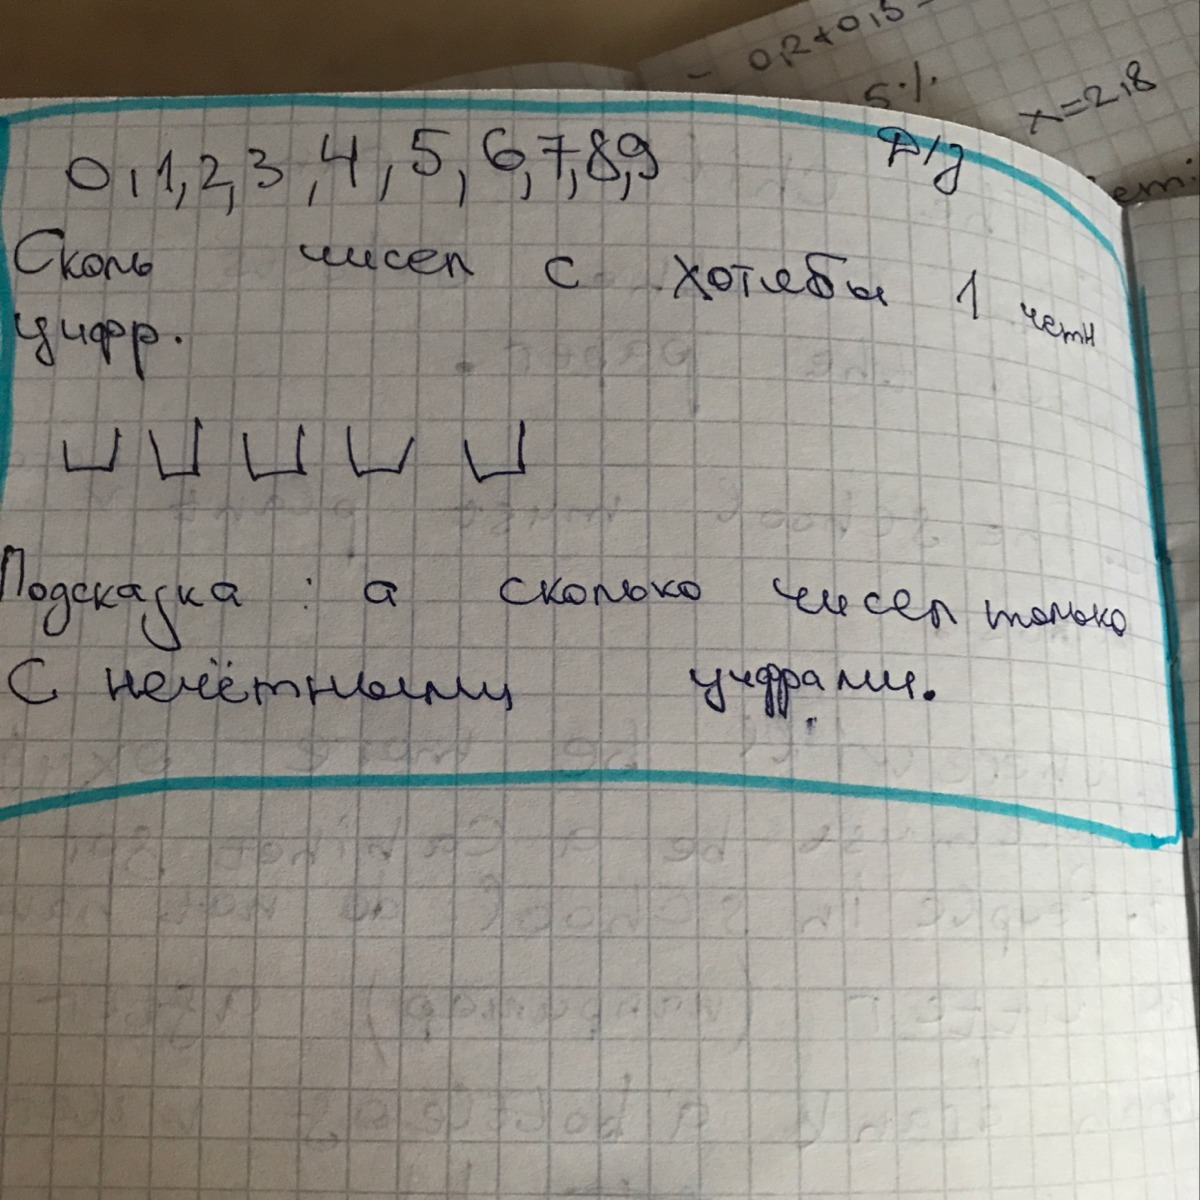 - 0,2+0,5-
5%
x=2,8
0,1,2,3,4,5,6,7,8,9
Д/з
Сколь чисел с хотябы 1 четн
цифр.
Подсказка : а сколько чисел только
с нечётными цифрами.